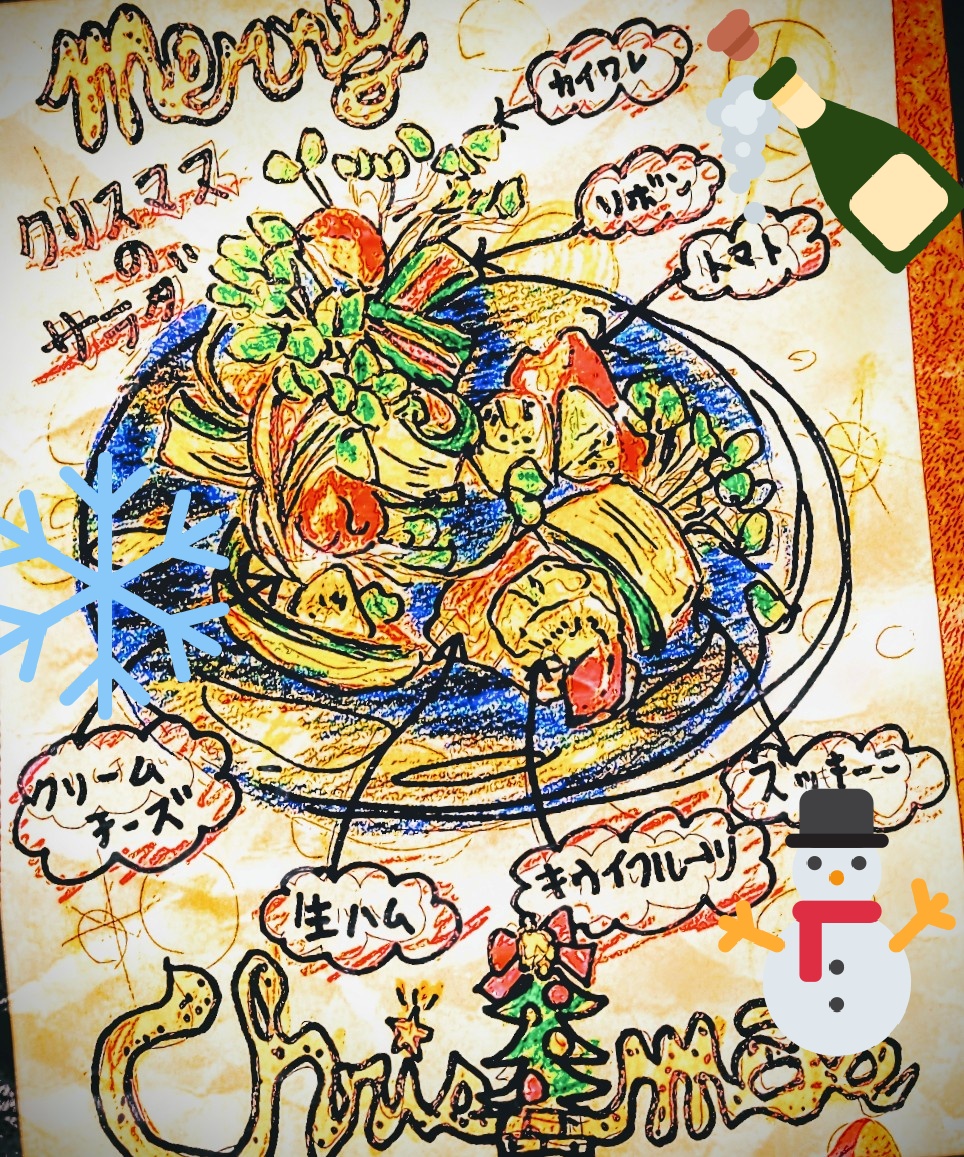 Merry
カイワレ
クリスマス
の
サラダ
リボン
トマト
クリーム
チーズ
ズッキーニ
キウイフルーツ
生ハム
Christmas